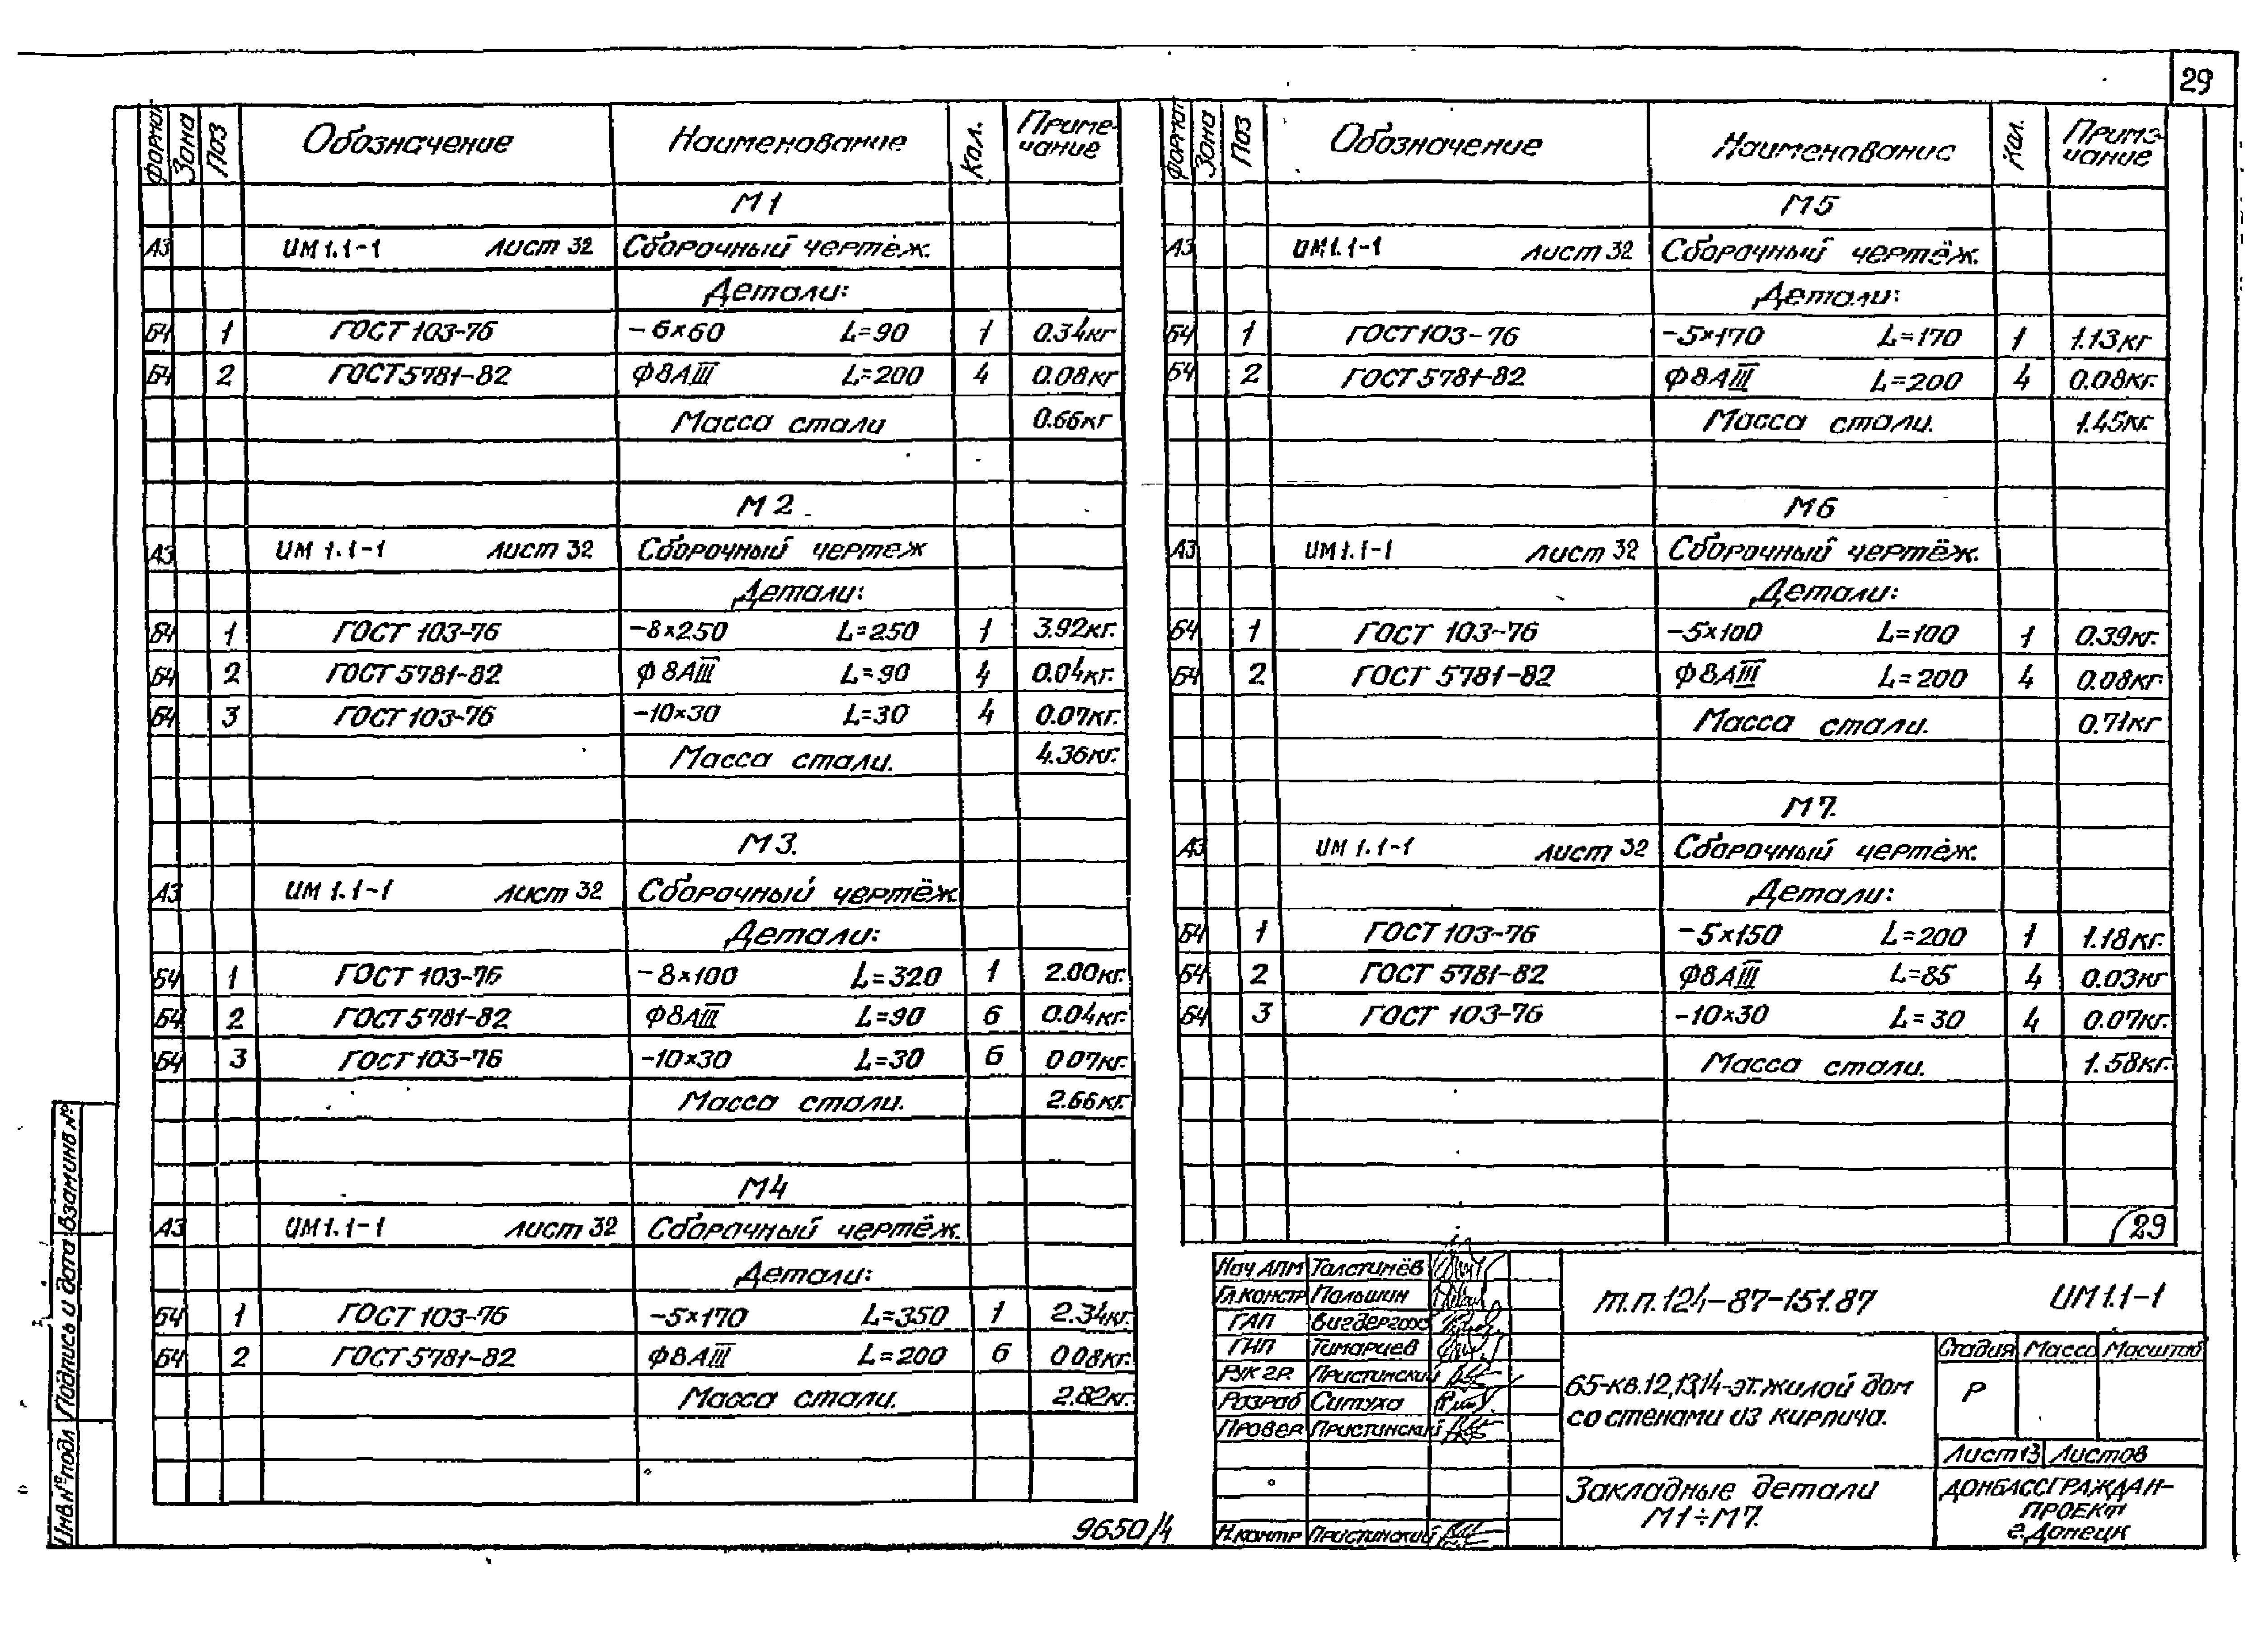 29
Формат Зона Поз Обозначение Наименование Кол. Приме-
чание
М1
А3 ИМ1.1-1 лист 32 Сборочный чертёж.
Детали:
БЧ 1 ГОСТ 103-76 -6×60 L=90 1 0.34кг
БЧ 2 ГОСТ 5781-82 Ф8АIII L=200 4 0.08кг
Масса стали 0.66кг
М2
А3 ИМ 1.1-1 лист 32 Сборочный чертеж
Детали:
БЧ 1 ГОСТ 103-76 -8×250 L=250 1 3.92кг.
БЧ 2 ГОСТ 5781-82 Ф8АIII L=90 4 0.04кг.
БЧ 3 ГОСТ 103-76 -10×30 L=30 4 0.07кг.
Масса стали. 4.36кг.
М3.
А3 ИМ 1.1-1 лист 32 Сборочный чертёж.
Детали:
БЧ 1 ГОСТ 103-76 -8×100 L=320 1 2.00кг.
БЧ 2 ГОСТ 5781-82 Ф8АIII L=90 6 0.04кг.
БЧ 3 ГОСТ 103-76 -10×30 L=30 6 0 07кг.
Масса стали. 2.66кг.
М4
А3 ИМ1.1-1 лист 32 Сборочный чертёж.
Детали:
БЧ 1 ГОСТ 103-76 -5×170 L=350 1 2.34кг.
БЧ 2 ГОСТ 5781-82 Ф8АIII L=200 6 0 08кг.
Масса стали. 2.82кг.
Формат Зона Поз Обозначение Наименование Кол. Приме-
чание
М5
А3 ИМ1.1-1 лист 32 Сборочный чертёж.
Детали:
БЧ 1 ГОСТ 103-76 -5×170 L=170 1 1.13кг
БЧ 2 ГОСТ 5781-82 Ф8АIII L=200 4 0.08кг.
Масса стали. 1.45кг.
М6
А3 ИМ1.1-1 лист 32 Сборочный чертёж.
Детали:
БЧ 1 ГОСТ 103-76 -5×100 L=100 1 0.39кг.
БЧ 2 ГОСТ 5781-82 Ф8АIII L=200 4 0.08кг
Масса стали. 0.71кг
М7.
А3 ИМ 1.1-1 лист 32 Сборочный чертёж.
Детали:
БЧ 1 ГОСТ 103-76 -5×150 L=200 1 1.18кг.
БЧ 2 ГОСТ 5781-82 Ф8АIII L=85 4 0.03кг
БЧ 3 ГОСТ 103-76 -10×30 L=30 4 0.07кг.
Масса стали. 1.58кг.
29
Нач АПМ Толстинёв
Гл.констр Польшин
ГАП
ГИП Тимарцев
Рук гр. Пристинский
Разраб Ситуха
Провер Пристинский
Н.контр Пристинский
т.п.124-87-151.87 ИМ1.1-1
65-кв.12,13,14-эт.жилой дом
со стенами из кирпича.
Стадия Масса Масштаб
Р
Лист 13 Листов
Закладные детали
М1÷М7.
ДОНБАССГРАЖДАН-
ПРОЕКТ
г.Донецк
Инв.№подл Подпись и дата Взам.инв №
9650/4